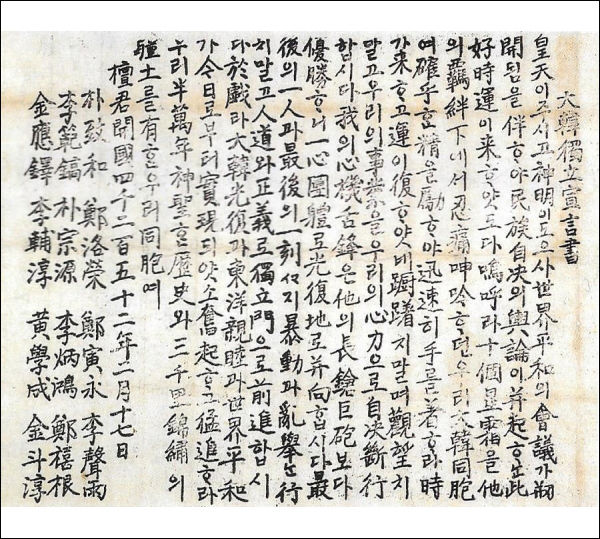 大韓獨立宣言書
皇天이주시고神明이도으사世界平和의會議가刱
開됨을伴ᄒᆞ야民族自决의輿論이并起ᄒᆞᄂᆞᆫ此
好時運이来ᄒᆞ얏도다嗚呼라十個星霜을他
의羈絆下에서忍痛呻吟ᄒᆞ던우리大韓同胞
여確乎ᄒᆞᆫ精을勵ᄒᆞ야迅速히手를著ᄒᆞ라時
가来ᄒᆞ고運이復ᄒᆞ얏네躊躇치말며觀望치
말고우리의事業을우리의心力으로自决斷行
합시다我의心機舌鋒은他의長鎗巨砲보다
優勝ᄒᆞ니一心團體로光復地로并向합시다最
後의一人과最後의一刻ᄭᆞ지暴動과亂擧ᄂᆞᆫ行
치말고人道와正義로獨立門으로前進합시
다於戱라大韓光復과東洋親睦과世界平和
가今日로부터實現되얏소奮起ᄒᆞ고猛進ᄒᆞ라
우리半萬年神聖ᄒᆞᆫ歷史와三千里錦繡의
疆土를有ᄒᆞᆫ우리同胞여
檀君開國四千二百五十二年二月十七日
朴致和 鄭洛榮 鄭寅永 李聲雨
李範鎬 朴宗源 李炳鴻 鄭禧根
金應鐸 李輔淳 黃學成 金斗淳